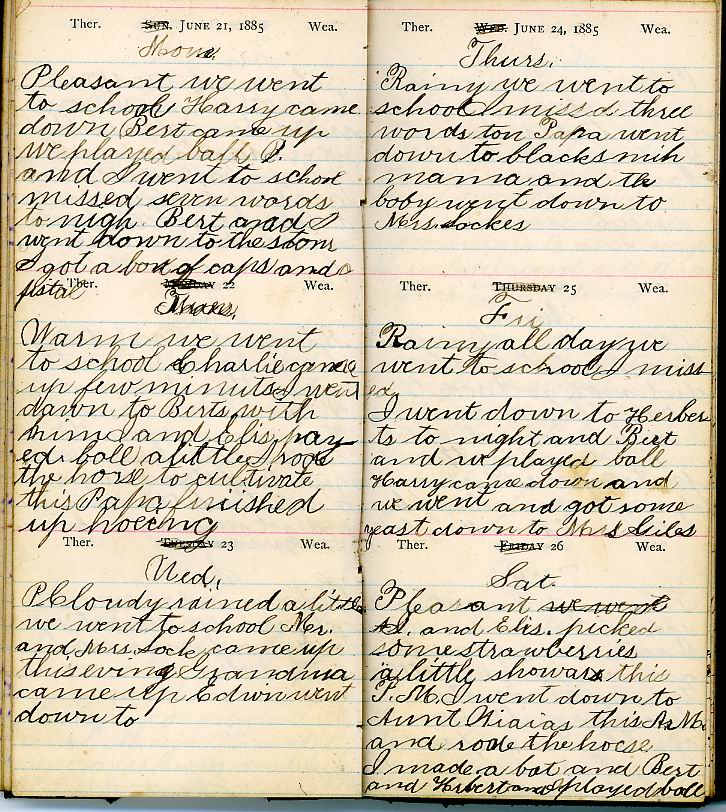 Ther. SUN. JUNE 21, 1885 Wea.
Mon.
Pleasant we went
to school Harry came
down Bert came up
we played ball P.
and I went to school
missed seven words
to nigh Bert and I
went down to the
I got a box of caps and a
pistal
Ther. MONDAY 22 Wea.
Warm we went
to school Charlie came
up few minuts I went
dawn to Berts with
him and Elis. pay
ed ball a little I rode
the horse to cultivate
this Papa finished
up hoeing
Ther. TUESDAY 23 Wea.
Wed,
P Cloudy rained a little
we went to school Mr.
and Mrs. Sock came up
this eving Grandma
came up Edwn went
down to
Ther. WED. JUNE 24, 1885 Wea.
Thurs,
Rainy we went to
school I missd three
words ton Papa went
down to blacksmih
mama and th
boby went down to
Mrs. Sockes
Ther. THURSDAY 25 Wea.
Fri
Rainy all day we
went to school I miss
ed
I went down to Herber
ts to night and Bert
and we played ball
Harry came down and
we went and got some
yeast down to Mrs Giles
Ther. FRIDAY 26 Wea.
Sat.
Pleasant we went
and Elis. picked
some strawberries
a little showars this
P.M. I went down to
Aunt this A. M.
and rode the horse
I made a bat and Bert
and Hrbert and I played ball